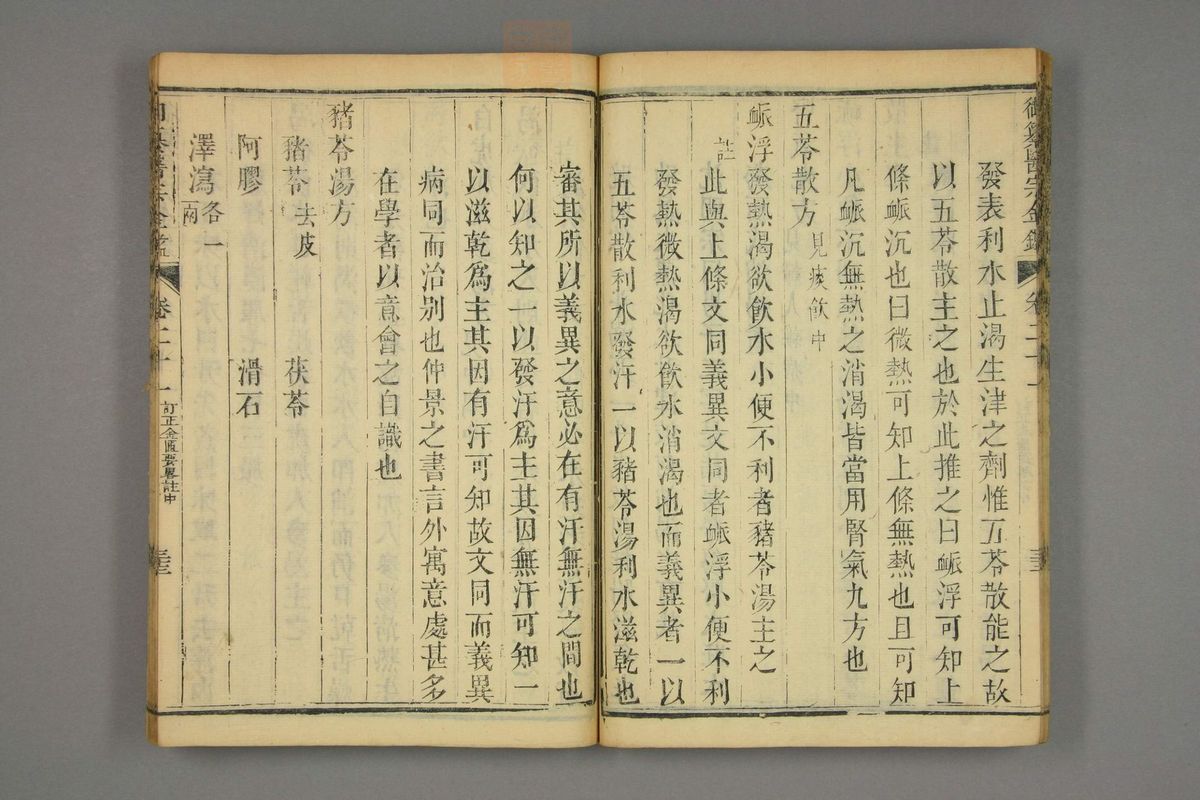 御纂醫宗金鑑 卷二十一 三三
發表利水止渴生津之劑惟五苓散能之故
以五苓散主之也於此推之曰脈浮可知上
條脈沉也曰微熱可知上條無熱也且可知
凡脈沉無熱之消渴皆當用腎氣九方也
五苓散方見痰飲中
脈浮發熱渴欲飲水小便不利者豬苓湯主之
註此與上條文同義異文同者脈浮小便不利
發熱微熱渴欲飲水消渴也而義異者一以
五苓散利水發汗一以豬苓湯利水滋乾也
審其所以義異之意必在有汗無汗之間也
何以知之一以發汗爲主其因無汗可知一
以滋乾爲主其因有汗可知故文同而義異
病同而治別也仲景之書言外寓意處甚多
在學者以意會之自識也
豬苓湯方
豬苓去皮 茯苓
阿膠 滑石
澤瀉各一兩
御纂醫宗金鑑 卷二十一 訂正金匱要畧註中 三三